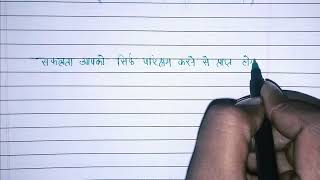 सफलता आपको सिर्फ परिश्रम करने से प्राप्त